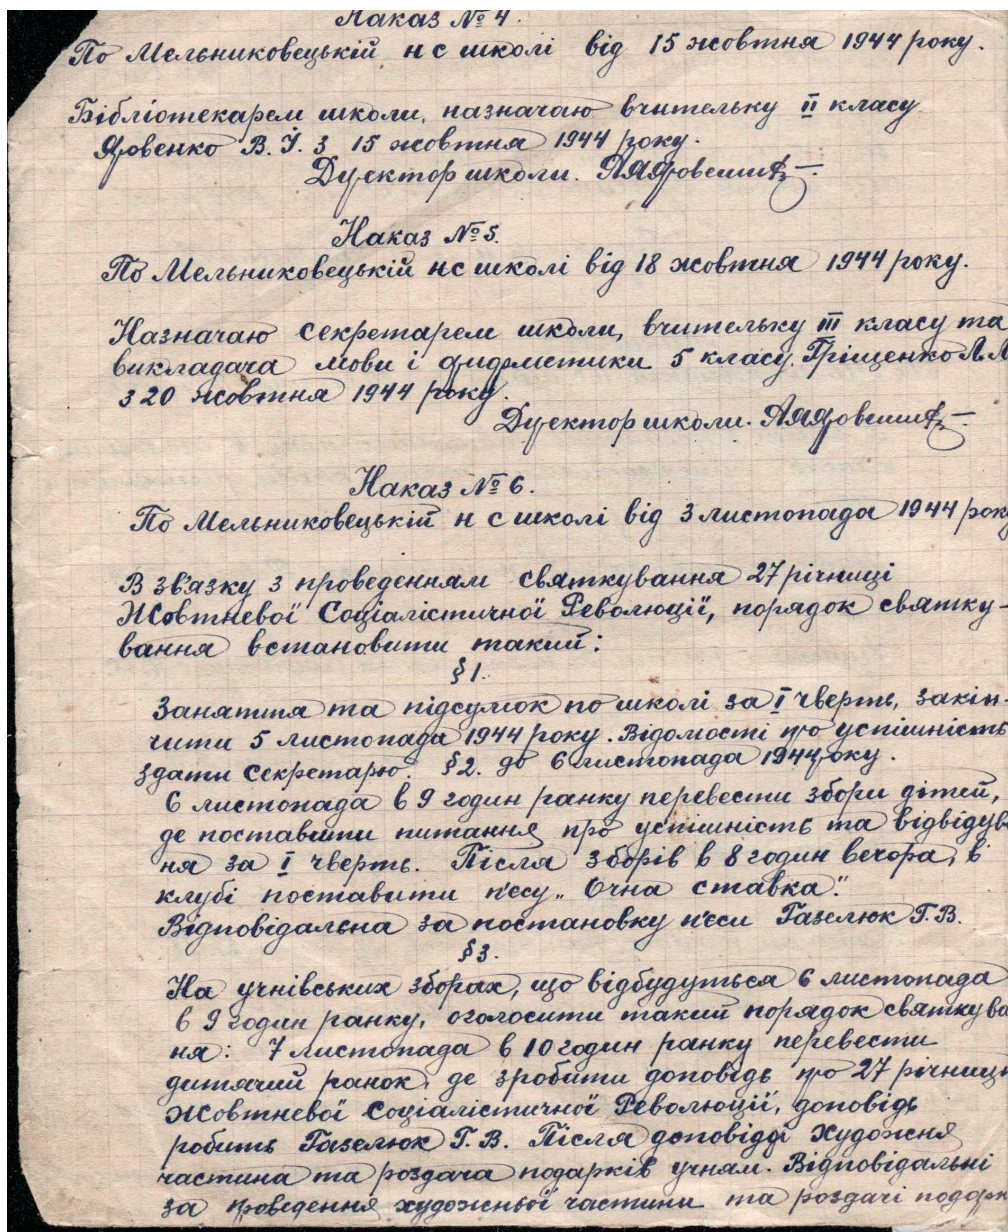 Наказ № 4.
По Мельниковецькій н с школі від 15 жовтня 1944 року.
Бібліотекарем школи, назначаю вчительку II класу
Яровенко В. Й. з 15 жовтня 1944 року.
Директор школи.
Наказ № 5.
По Мельниковецькій нс школі від 18 жовтня 1944 року.
Назначаю секретарем школи, вчительку III класу та
викладача мови і аридметики 5 класу. Гріщенко Л. Л
з 20 жовтня 1944 року.
Директор школи.
Наказ № 6.
По Мельниковецькій н с школі від 3 листопада 1944 року
В зв'язку з проведенням святкування 27 річниці
Жовтневої Соціалістичної Революції, порядок святку-
вання встановити такий:
§ 1.
Заняття та підсумок по школі за I чверть, закін-
чити 5 листопада 1944 року. Відомості про успішність
здати секретарю. §2. до 6 листопада 1944 року.
6 листопада в 9 годин ранку перевести збори дітей,
де поставити питання про успішність та відвідув
ня за I чверть. Після зборів в 8 годин вечора, в
клубі поставити п'єсу „Очна ставка".
Відповідальна за постановку п'єси Газелюк Г. В.
§ 3.
На учнівських зборах, що відбудуться 6 листопада
в 9 годин ранку, оголосити такий порядок святкува
ня: 7 листопада в 10 годин ранку перевести
дитячий ранок, де зробити доповідь про 27 річниці
Жовтневої Соціалістичної Революції, доповідь
робить Газелюк Г. В. Після доповіді художня
частина та роздача подарків учням. Відповідальні
за проведення художньої частини та роздачі подарк